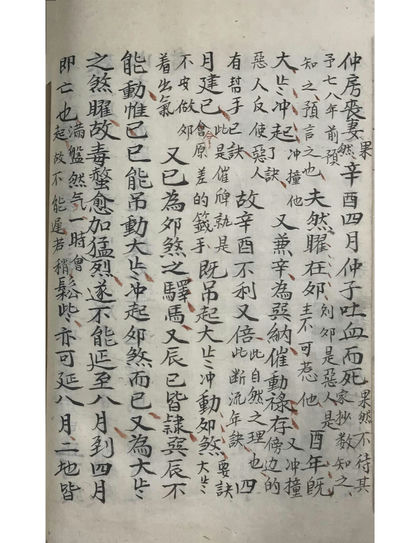 仲房喪妻果然辛酉四月仲子吐血而死果然不待其
予七八年前預知之預言之也 夫然曜在卯 則卯是惡人是主不可惹他 酉年既
大歲冲起了訣 冲撞他 又兼辛為巽納催動祿存 又冲撞傍边的
惡人反使惡人有幫手已訣 故辛酉不利又倍 此自然之理也 此断流年訣 四
月建巳 此是催牌執是會原差的籤手 既吊起大歲冲動卯煞 要訣
不安做卯著出氣 又巳為卯煞之驛馬又辰巳皆隸巽辰不
能動惟巳巳能吊動大歲冲起卯煞而巳又為大歲
之煞曜故毒螫愈加猛烈遂不能延至八月到四月
即亡也 滿盤煞气一時會起故不能遲若稍鬆些亦可延八月二地皆